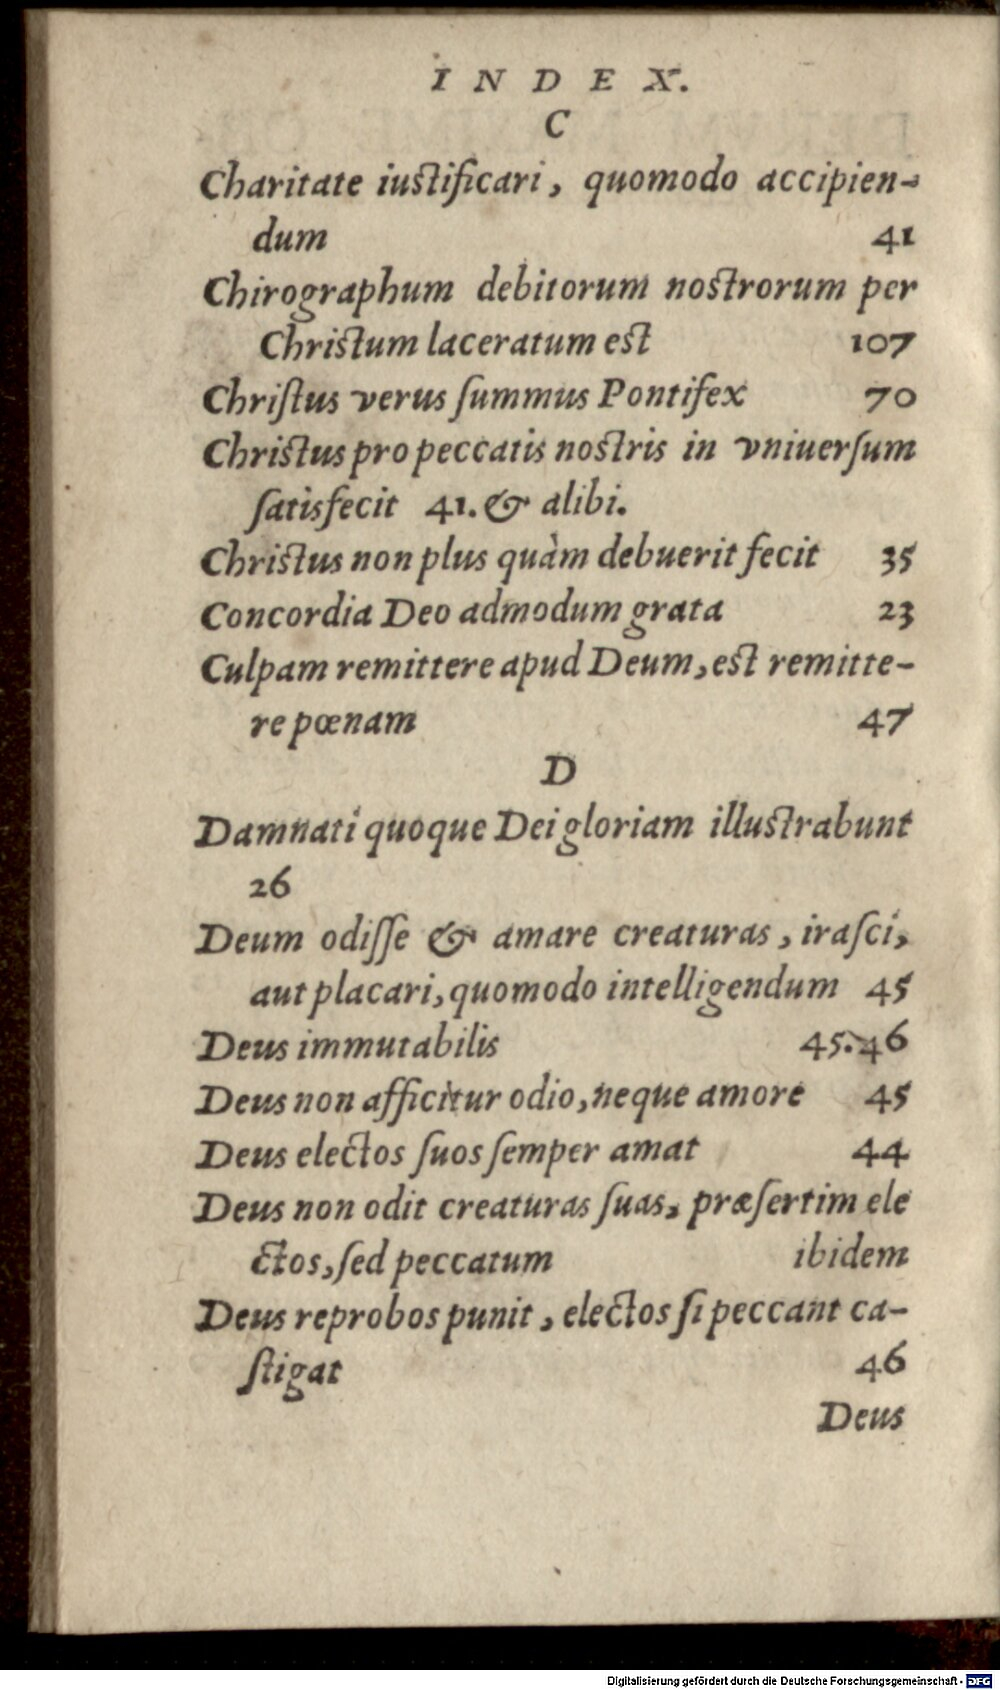 INDEX.
C
Charitate iustificari, quomodo accipien-
dum 41
Chirographum debitorum nostrorum per
Christum laceratum est 107
Chriſtus verus ſummus Pontifex 70
Christus pro peccatis nostris in vniuerſum
ſatisfecit 41. & alibi.
Christus non plus quàm debuerit fecit 35
Concordia Deo admodum grata 23
Culpam remittere apud Deum, est remitte-
re pœnam 47
D
Damnati quoque Dei gloriam illustrabunt
26
Deum odiſſe & amare creaturas, iraſci,
aut placari, quomodo intelligendum 45
Deus immutabilis 45.46
Deus non afficitur odio, neque amore 45
Deus electos ſuos ſemper amat 44
Deus non odit creaturas ſuas, præſertim ele
ctos, ſed peccatum ibidem
Deus reprobos punit, electos ſi peccant ca-
ſtigat 46
Deus
Digitalisierung gefördert durch die Deutsche Forschungsgemeinschaft - DFG